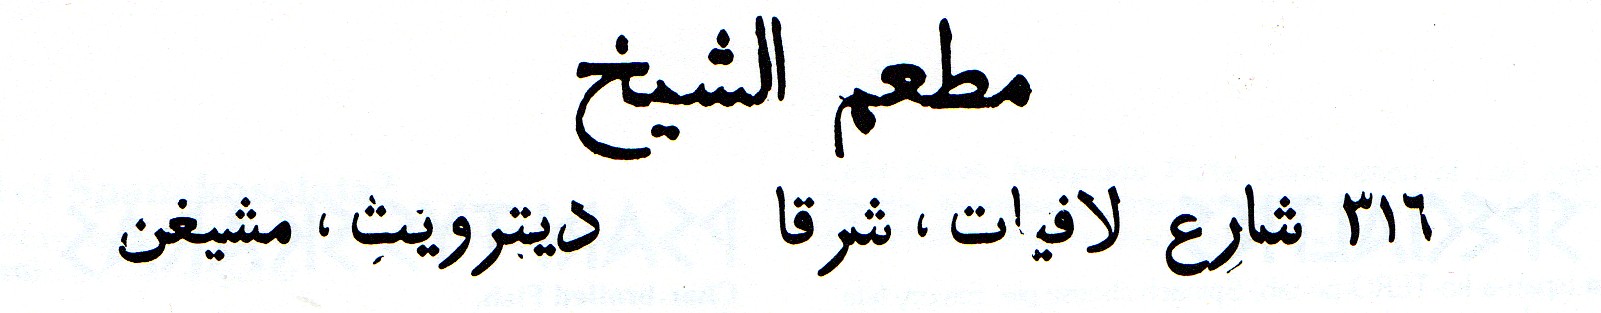 مطعم الشيخ
٣١٦ شارِع لافيات ، شرقا ديترويث ، مشيغن